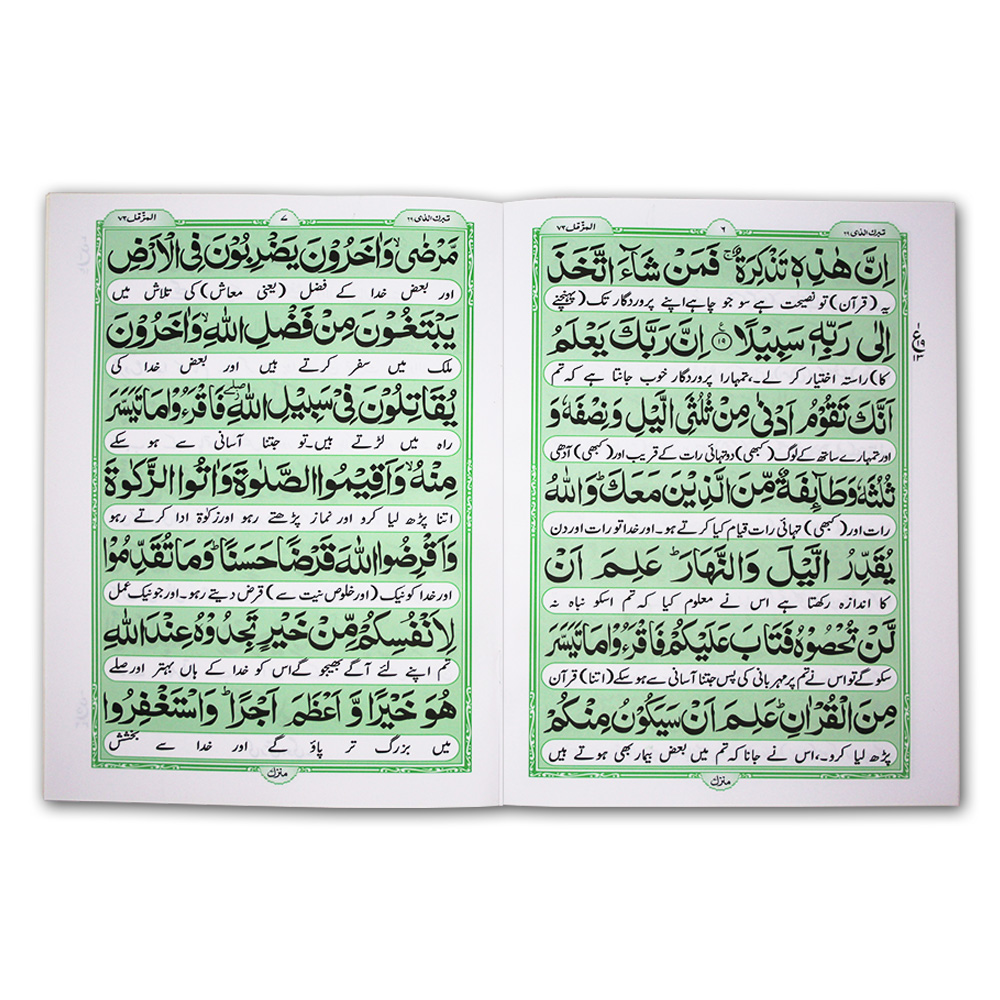 تبرك الذی ٢٩
٦
المزّمّل ٧٣
اِنَّ هٰذِهٖ تَذْكِرَةٌ ۚ فَمَنْ شَآءَ اتَّخَذَ
یہ (قرآن) تو نصیحت ہے سو جو چاہے اپنے پروردگار تک (پہنچنے
اِلٰى رَبِّهٖ سَبِيْلًا ﴿١٩﴾ اِنَّ رَبَّكَ يَعْلَمُ
ع ١٩ ١٣
کا) راستہ اختیار کر لے۔ تمہارا پروردگار خوب جانتا ہے کہ تم
اَنَّكَ تَقُوْمُ اَدْنٰى مِنْ ثُلُثَيِ الَّيْلِ وَنِصْفَهٗ وَ
اور تمہارے ساتھ کے لوگ (کبھی) دو تہائی رات کے قریب اور (کبھی) آدھی
ثُلُثَهٗ وَطَآئِفَةٌ مِّنَ الَّذِيْنَ مَعَكَ ؕ وَاللّٰهُ
رات اور (کبھی) تہائی رات قیام کیا کرتے ہو۔ اور خدا تو رات اور دن
يُقَدِّرُ الَّيْلَ وَالنَّهَارَ ؕ عَلِمَ اَنْ
کا اندازہ رکھتا ہے اس نے معلوم کیا کہ تم اسکو نباہ نہ
لَّنْ تُحْصُوْهُ فَتَابَ عَلَيْكُمْ فَاقْرَءُوْا مَا تَيَسَّرَ
سکو گے تو اس نے تم پر مہربانی کی پس جتنا آسانی سے ہو سکے (اتنا) قرآن
مِنَ الْقُرْاٰنِ ؕ عَلِمَ اَنْ سَيَكُوْنُ مِنْكُمْ
پڑھ لیا کرو۔ اس نے جانا کہ تم میں بعض بیمار بھی ہوتے ہیں
منزل
تبرك الذی ٢٩
٧
المزّمّل ٧٣
مَّرْضٰى ۙ وَاٰخَرُوْنَ يَضْرِبُوْنَ فِى الْاَرْضِ
اور بعض خدا کے فضل (یعنی معاش) کی تلاش میں
يَبْتَغُوْنَ مِنْ فَضْلِ اللّٰهِ ۙ وَاٰخَرُوْنَ
ملک میں سفر کرتے ہیں اور بعض خدا کی
يُقَاتِلُوْنَ فِىْ سَبِيْلِ اللّٰهِ ۖ فَاقْرَءُوْا مَا تَيَسَّرَ
راہ میں لڑتے ہیں۔ تو جتنا آسانی سے ہو سکے
مِنْهُ ۙ وَاَقِيْمُوا الصَّلٰوةَ وَاٰتُوا الزَّكٰوةَ
اتنا پڑھ لیا کرو اور نماز پڑھتے رہو اور زکوٰۃ ادا کرتے رہو
وَاَقْرِضُوا اللّٰهَ قَرْضًا حَسَنًا ؕ وَمَا تُقَدِّمُوْا
اور خدا کو نیک (اور خلوص نیت سے) قرض دیتے رہو۔ اور جو نیک عمل
لِاَنْفُسِكُمْ مِّنْ خَيْرٍ تَجِدُوْهُ عِنْدَ اللّٰهِ
تم اپنے لئے آگے بھیجو گے اس کو خدا کے ہاں بہتر اور صلے
هُوَ خَيْرًا وَّ اَعْظَمَ اَجْرًا ؕ وَاسْتَغْفِرُوا
میں بزرگ تر پاؤ گے اور خدا سے بخشش
منزل